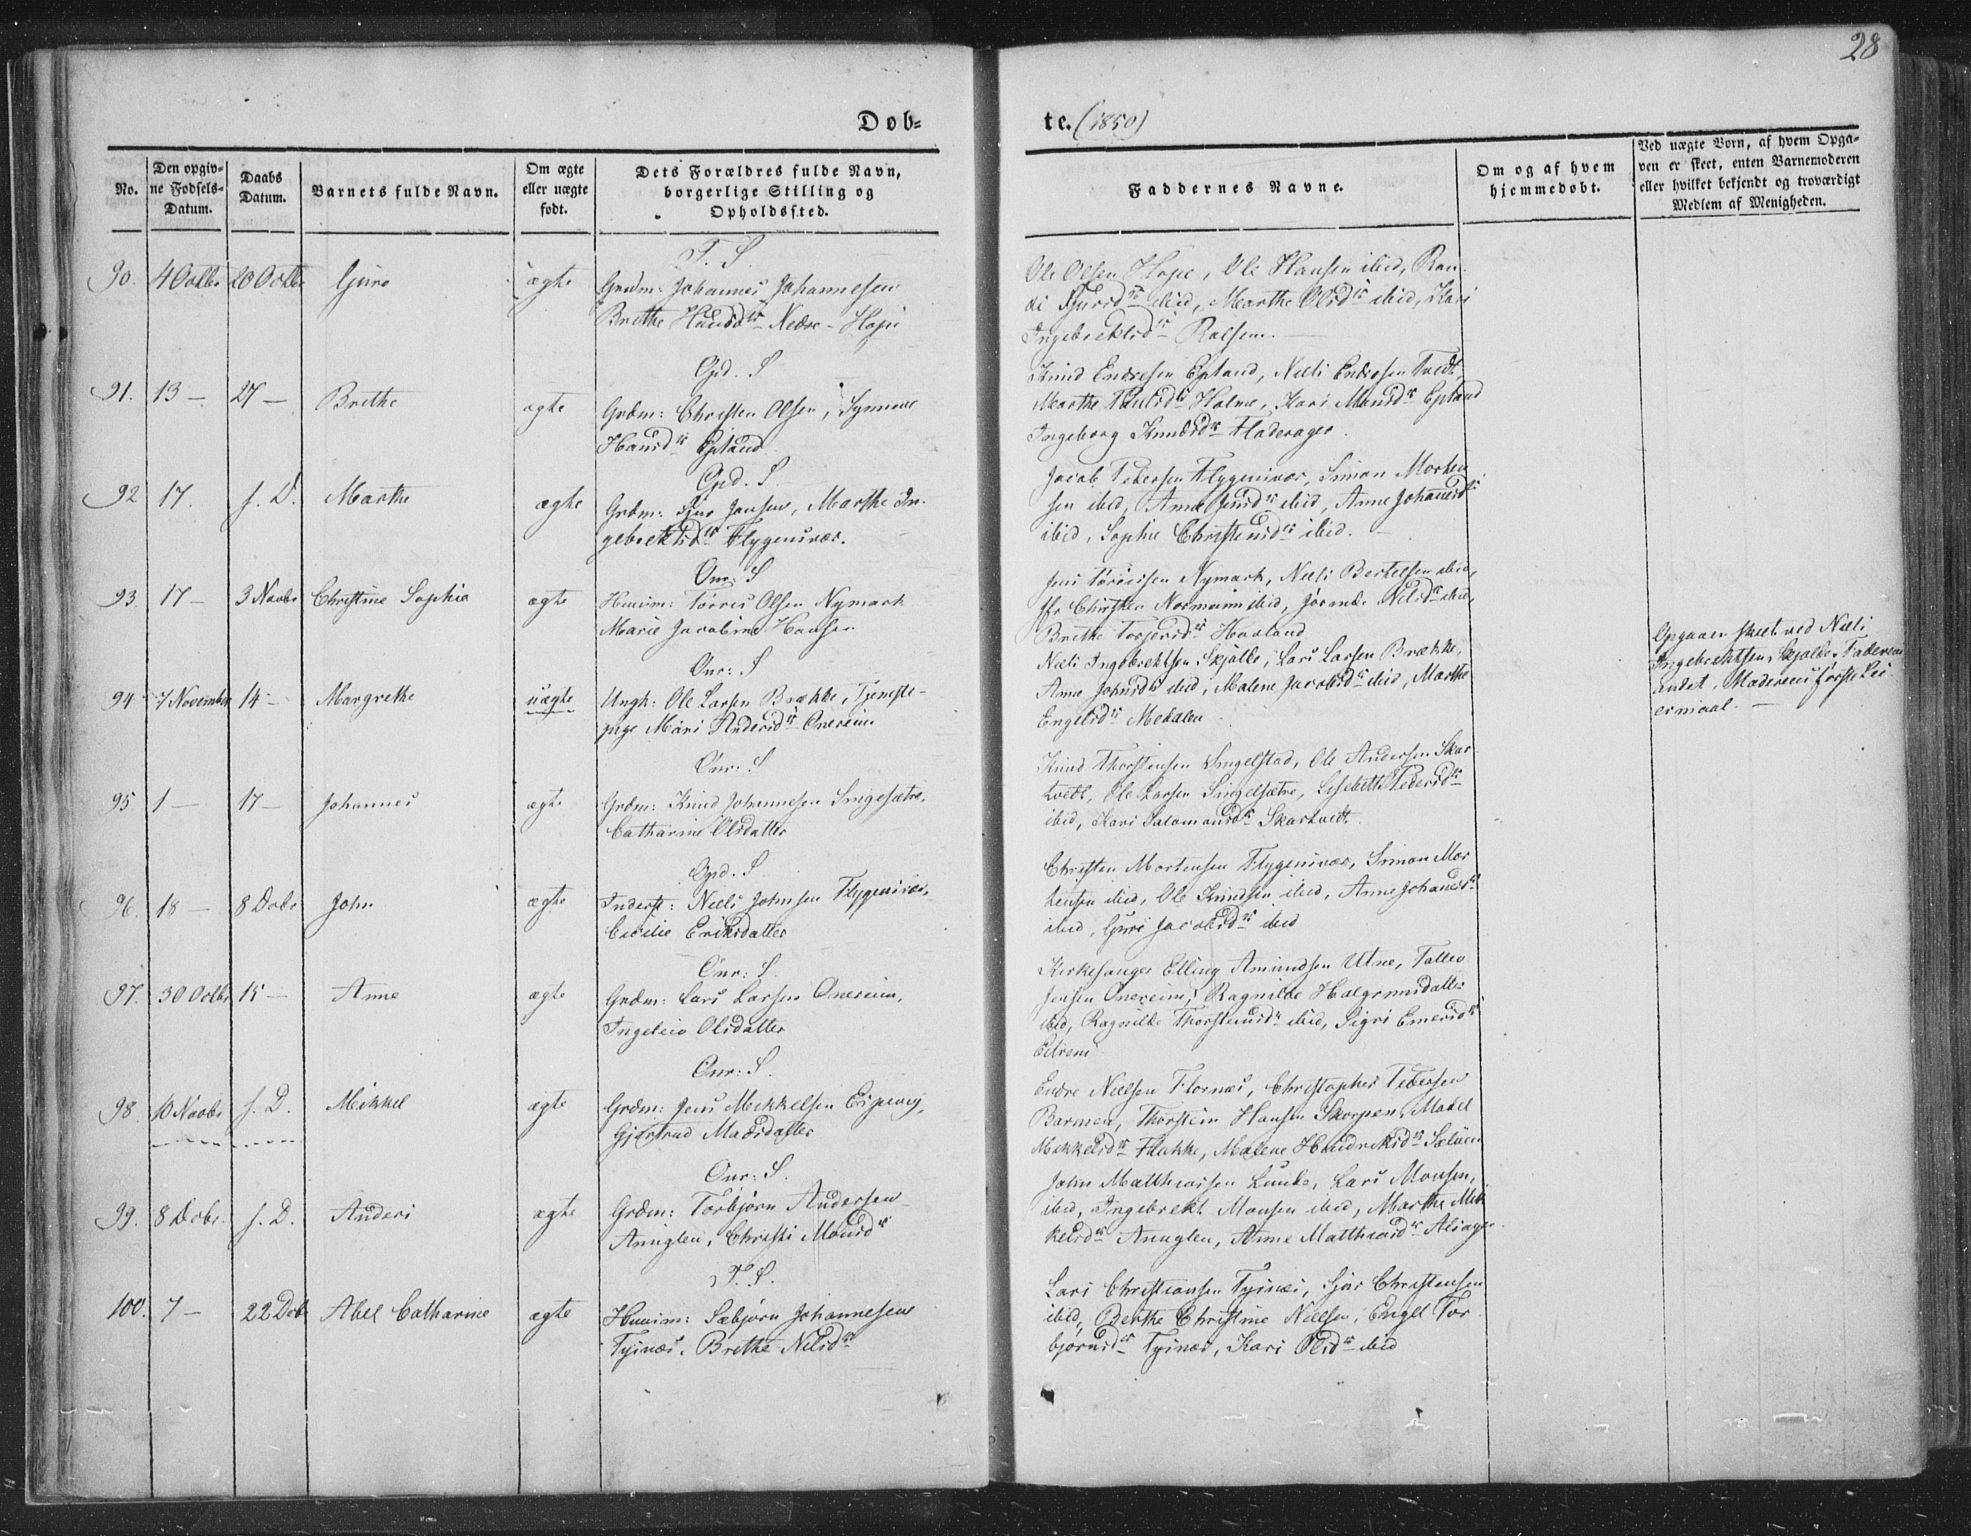 28
Døb-
te. (1850)
No.
Den opgiv-
ne Fødsels-
Datum.
Daabs
Datum.
Barnets fulde Navn.
Om ægte
eller uægte
født.
Dets Forældres fulde Navn,
borgerlige Stilling og
Opholdssted.
Faddernes Navne.
Om og af hvem
hjemmedøbt.
Ved uægte Børn, af hvem Opga-
ven er skeet, enten Barnemoderen
eller hvilket bekjendt og troværdigt
Medlem af Menigheden.
T. S.
90. 4 Octbr 20 Octbr Guro ægte Grdm: Johannes Johannesen
Brithe Hansdr Nedre-Hope
Ole Olsen Hope, Ole Hansen ibid, Ran-
di ibid, Marthe Olsdr ibid, Kari
Ingebrektsdr
Opd. S
91. 13 — 27 — Brithe ægte Grdm: Christen Olsen, Synneve
Hansdr Epland
Knud Endresen Epland, Niels Endresen Tvedt,
Marthe Holme, Kari Monsdr Epland
Ingeborg Knudsdr Fladerager.
Opd. S.
92 17. s. D. Marthe ægte Grdm: Sjur Jansen, Marthe In-
gebrektsdr Flygensvær.
Jacob Pedersen Flygensvær, Simon Morten
sen ibid, Anne ibid, Anne Johansdr
ibid, Sophie Christensdr ibid.
Onr: S
93. 17 — 3 Novbr Christine Sophie ægte Huusm: Torres Olsen Nymark
Marie Jacobine Hansen
Nymark, Niels Bertelsen ibid,
Normann ibid, Nilsdr ibid,
Brithe Torgersdr Haaland
Onr: S
94 7 November 14 — Margrethe uægte Ungk: Ole Larsen Brække, Tjeneste-
pige Mari Andersdr Onereim
Niels Ingebrektsen Skjælde, Lars Larsen Brække,
Anne Johnsdr ibid, Malene Jacobsdr ibid, Marthe
Engelsdr Medalen
Opgaven skeet ved Niels
Ingebrektsen Skjælde. Faderens
andet, Moderens første Lei-
ermaal. —
Onr: S
95. 1 — 17 — Johannes ægte Grdm: Knud Johannesen Singelsætre,
Catharine Olsdatter
Knud Thorstensen Singelstad, Ole Andersen Skar
tvedt, Ole Larsen Singelsætre, Lisebeth Pedersdr
ibid, Kari Salamonsdr Skartvedt.
Opd. S.
96. 18 — 8 Dcbr John ægte Inderst: Niels Johnsen Flygensvær,
Cicilie Eriksdatter
Christen Mortensen Flygensvær, Simon Mor
tensen ibid, Ole Knudsen ibid, Anne Johansdr
ibid, Guri Jacobsdr ibid
Onr: S.
97. 30 Octbr 15 — Anne ægte Grdm: Lars Larsen Onereim,
Olsdatter
Kirkesanger Elling Amundsen Utne, Tollev
Jensen Onereim, Ragnilde Halgrimsdatter
ibid, Ragnilde Thorstensdr ibid, Sigri
Eitrem
Onr: S.
98. 10 Novbr s. D. Mikkel ægte Grdm: Jens Mekkelsen Espevig,
Gjertrud Madsdatter
Endre Nielsen Flornæs, Christopher Petersen
Barmen, Thorstein Hansen Skorpen, Madel
Mekkelsdr Flukke, Malene Hendriksdr
Onr: S.
99. 8 Dcbr. s. D. Anders ægte Grdm: Torbjørn Andersen
Anuglen, Christi Monsdr
John Matthiassen Lunde, Lars Monsen,
ibid, Ingebrekt Monsen ibid, Marthe Mik
kelsdr Anuglen, Anne Matthiasdr
T. S.
100. 7 — 22 Dcb Abel Catharine ægte Huusm: Sæbjørn Johannesen
Tysnæs, Brithe Nilsdr
Lars Christiansen Tysnæs, Sjur Christensen
ibid, Berthe Christine Nielsen, Engel Tor
bjørnsdr Tysnæs, Kari Olsdr ibid